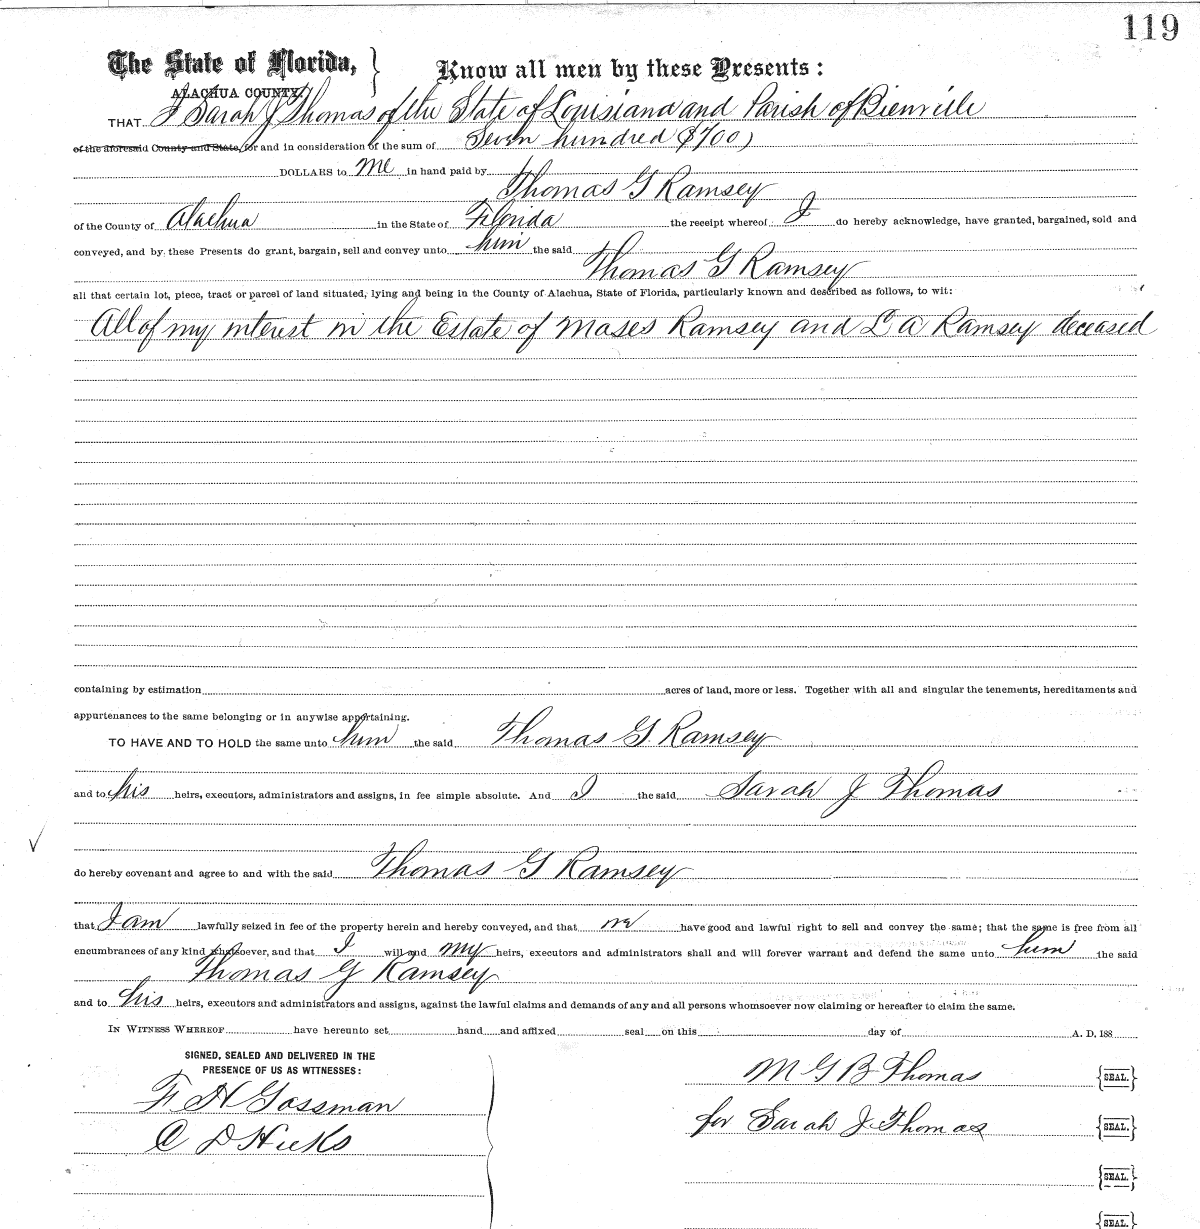 119
The State of Florida, } Know all men by these Presents:
ALACHUA COUNTY.
THAT I Sarah J Thomas of the State of Louisiana and Parish of Bienville
of the aforesaid County and State, for and in consideration of the sum of Seven hundred ($700)
DOLLARS to me in hand paid by
Thomas G Ramsey
of the County of Alachua in the State of Florida the receipt whereof I do hereby acknowledge, have granted, bargained, sold and
conveyed, and by these Presents do grant, bargain, sell and convey unto him the said
Thomas G Ramsey
all that certain lot, piece, tract or parcel of land situated, lying and being in the County of Alachua, State of Florida, particularly known and described as follows, to wit:
All of my interest in the Estate of Moses Ramsey and L A Ramsey deceased
containing by estimation acres of land, more or less. Together with all and singular the tenements, hereditaments and
appurtenances to the same belonging or in anywise appertaining.
TO HAVE AND TO HOLD the same unto him the said Thomas G. Ramsey
and to his heirs, executors, administrators and assigns, in fee simple absolute. And I the said Sarah J Thomas
do hereby covenant and agree to and with the said Thomas G Ramsey
that I am lawfully seized in fee of the property herein and hereby conveyed, and that have good and lawful right to sell and convey the same; that the same is free from all
encumbrances of any kind whatsoever, and that I will and my heirs, executors and administrators shall and will forever warrant and defend the same unto him the said
Thomas G Ramsey
and to his heirs, executors and administrators and assigns, against the lawful claims and demands of any and all persons whomsoever now claiming or hereafter to claim the same.
IN WITNESS WHEREOF have hereunto set hand and affixed seal on this day of A. D. 188
SIGNED, SEALED AND DELIVERED IN THE
PRESENCE OF US AS WITNESSES:
M G B Thomas {SEAL.}
F H Gossman
for Sarah J. Thomas {SEAL.}
C D Hicks
{SEAL.}
{SEAL.}